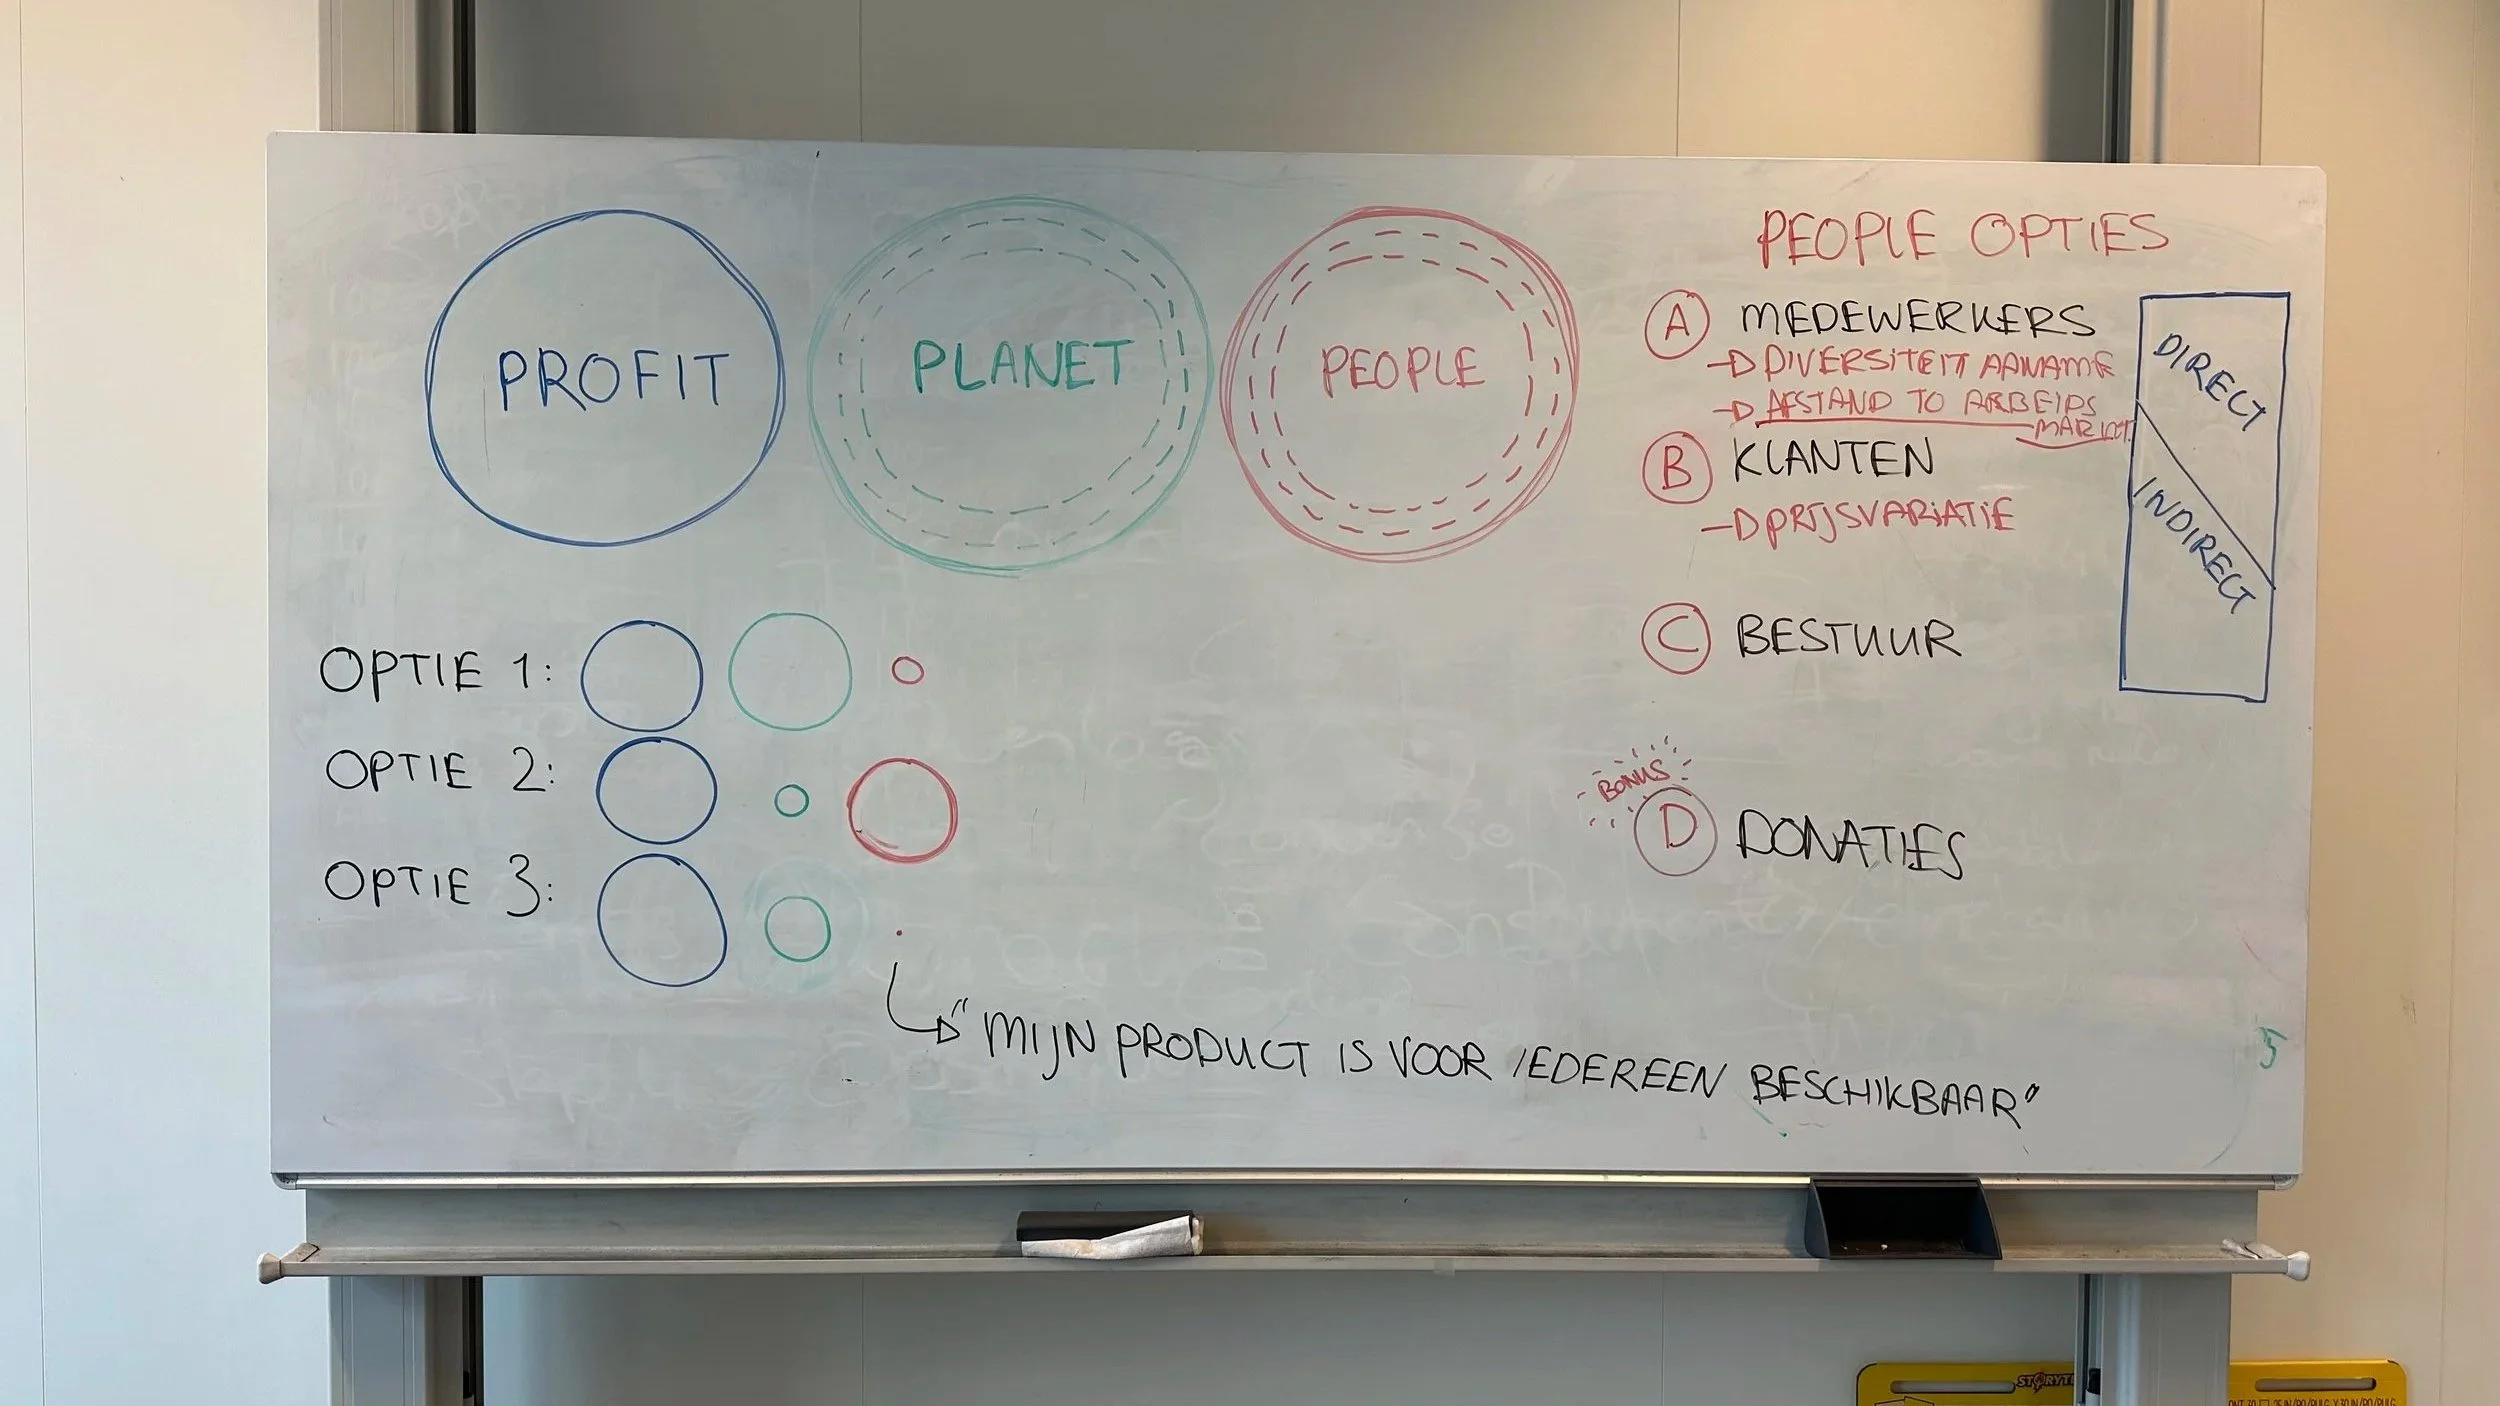 PROFIT
PLANET
PEOPLE
OPTIE 1:
OPTIE 2:
OPTIE 3:
"MIJN PRODUCT IS VOOR IEDEREEN BESCHIKBAAR"
PEOPLE OPTIES
A MEDEWERKERS
DIVERSITEIT AANAME
AFSTAND TO ARBEIDS
MARKT
B KLANTEN
PRIJSVARIATIE
C BESTUUR
BONUS
D DONATIES
DIRECT
INDIRECT
5